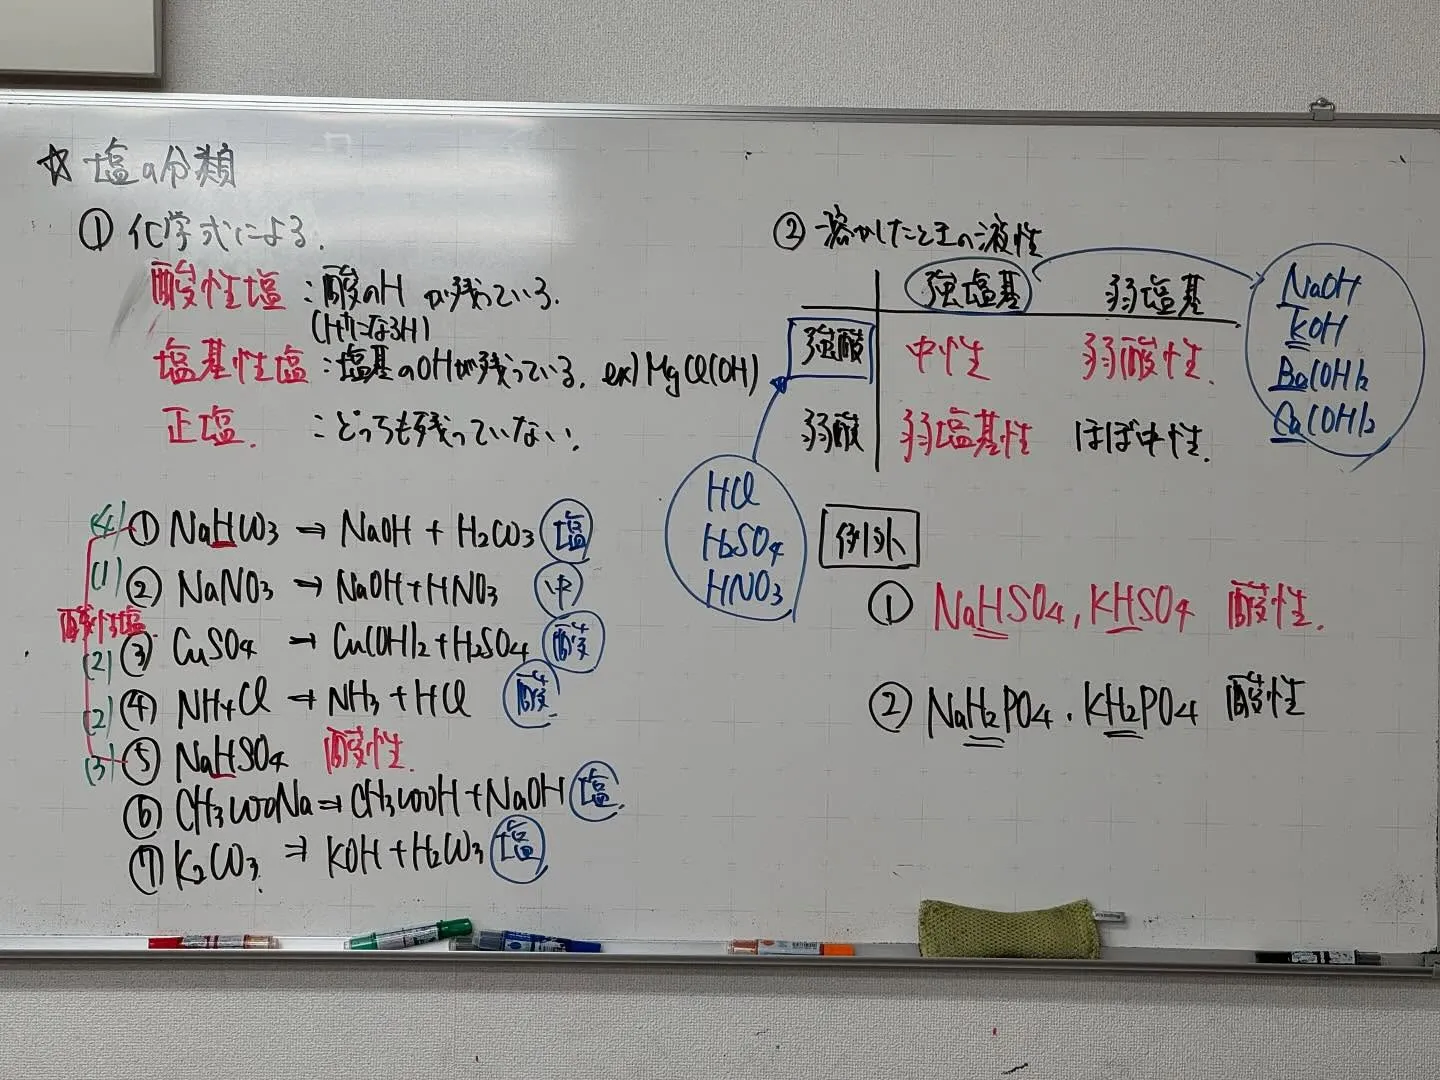 ☆ 塩の分類
① 化学式による.
酸性塩 : 酸のH が残っている.
(H⁺になるH)
塩基性塩 : 塩基のOHが残っている. ex) MgCl(OH)
正塩. : どっちも残っていない.
(4) ① NaHCO3 ⇒ NaOH + H2CO3 塩
(1) ② NaNO3 → NaOH + HNO3 中
酸性塩
(2) ③ CuSO4 → Cu(OH)2 + H2SO4 酸
(2) ④ NH4Cl → NH3 + HCl 酸
(3) ⑤ NaHSO4 酸性.
⑥ CH3COONa ⇒ CH3COOH + NaOH 塩.
⑦ K2CO3. ⇒ KOH + H2CO3 塩
② 溶かしたときの液性
強塩基 弱塩基
強酸 中性 弱酸性.
弱酸 弱塩基性 ほぼ中性.
NaOH
KOH
Ba(OH)2
Ca(OH)2
HCl
H2SO4
HNO3
例外
① NaHSO4, KHSO4 酸性.
② NaH2PO4. KH2PO4 酸性